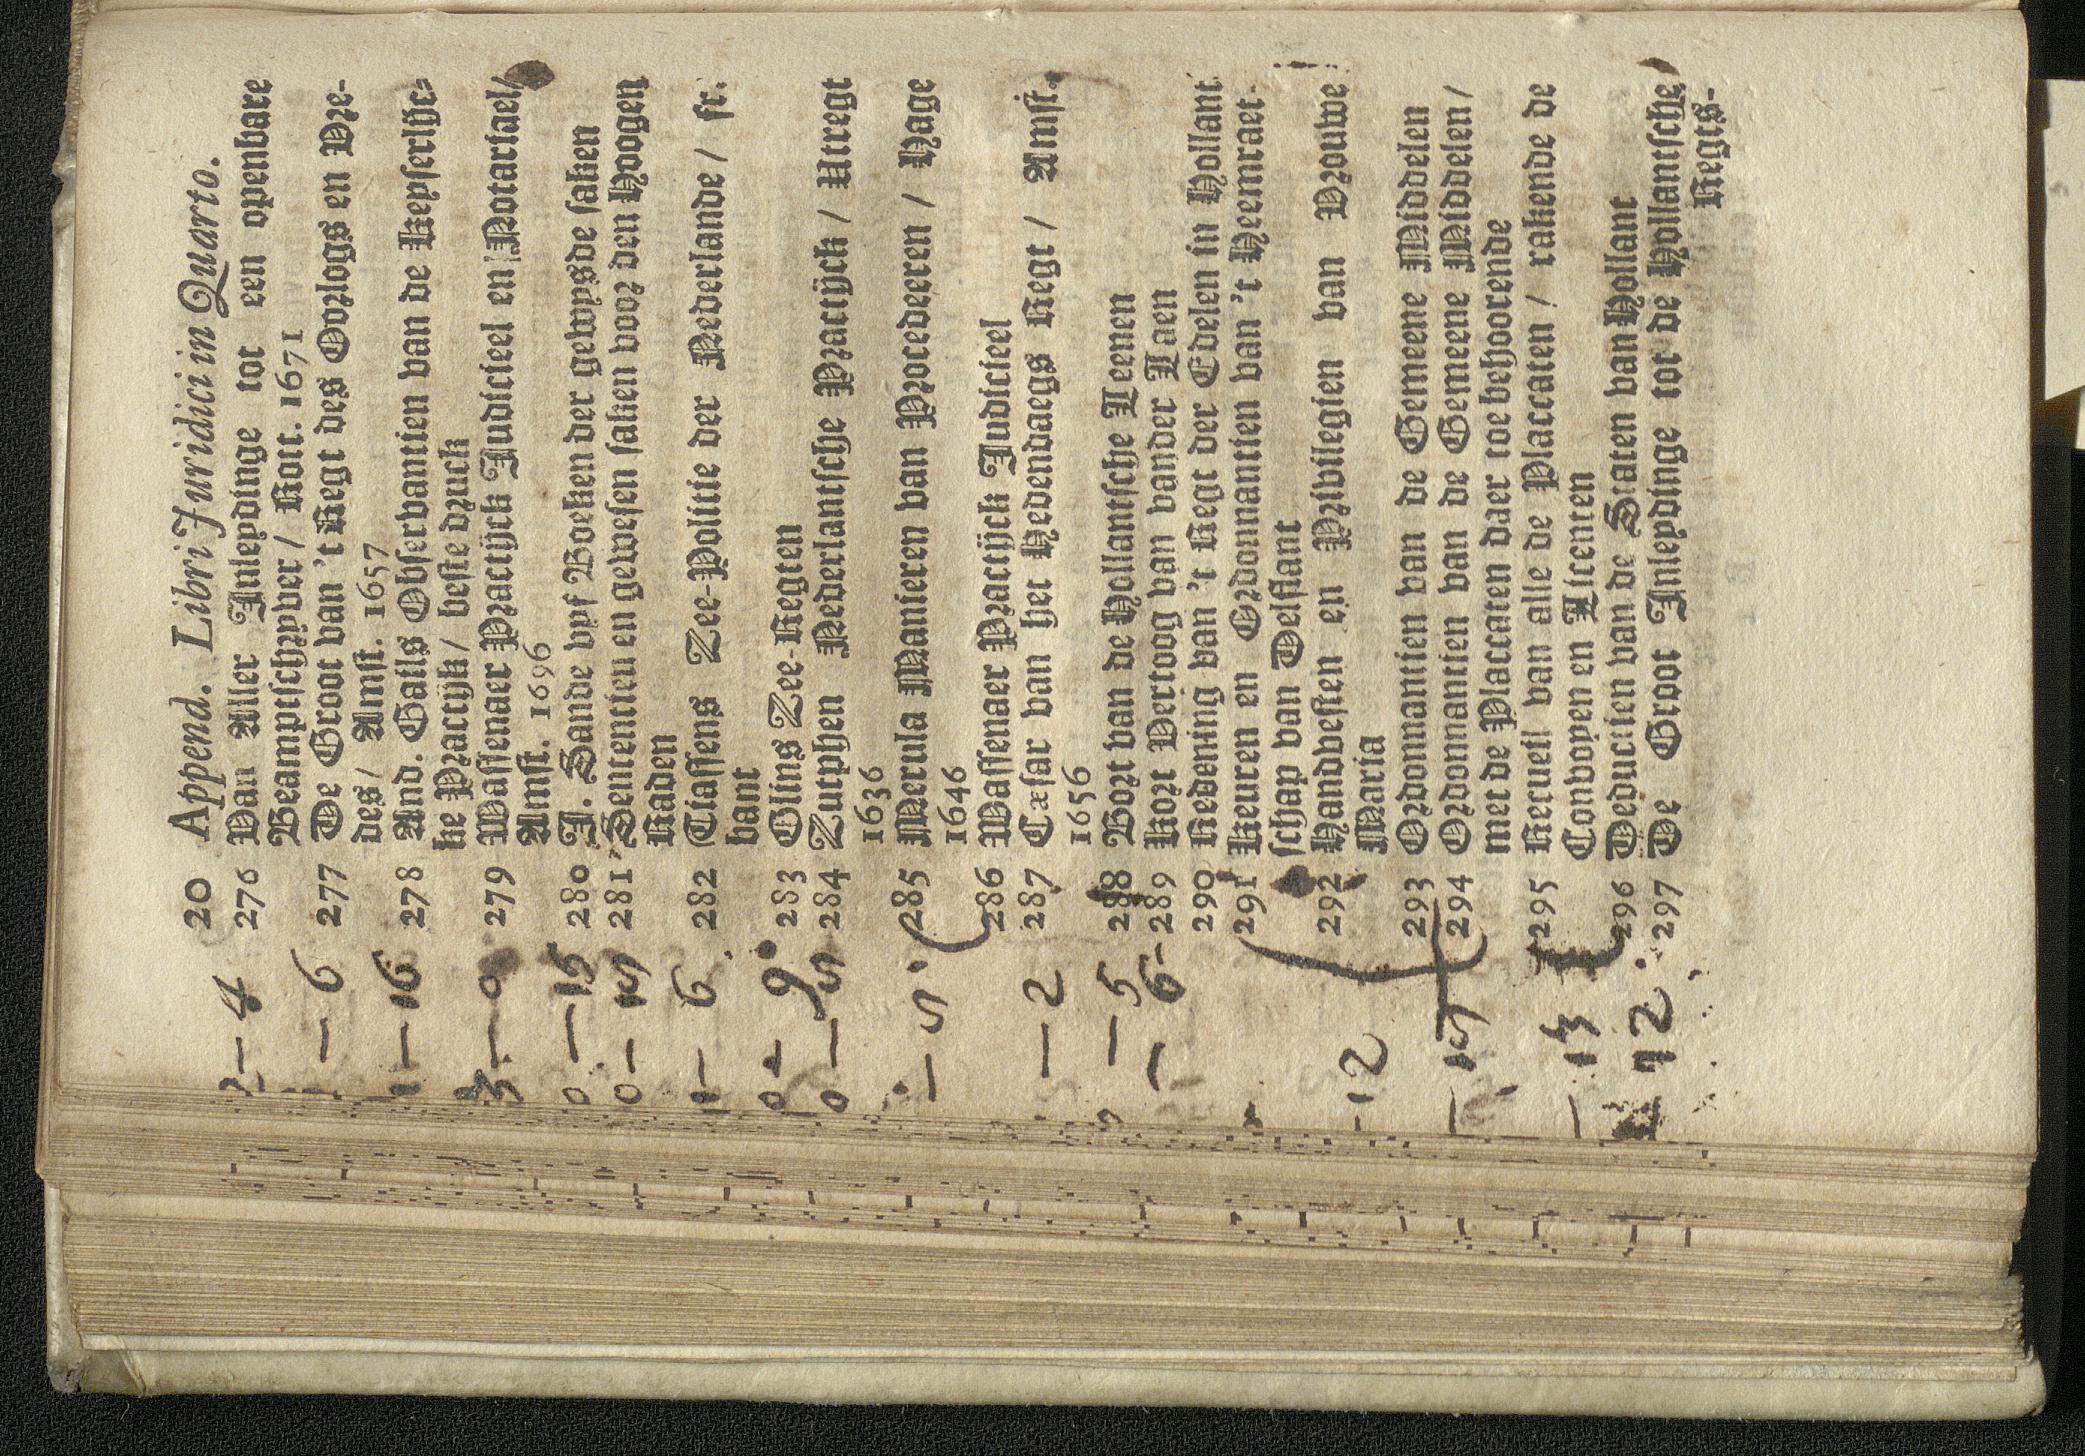 20 Append. Libri Juridici in Quarto.
2 – 4 276 Van Aller Inleydinge tot een openbare
Beamptschryver / Rott. 1671
– 6 277 De Groot van 't Regt des Oorlogs en Vre-
des / Amst. 1657
1 – 16 278 And. Gails Observantien van de Keyserlijc-
ke Practijk / beste druck
3 – 0 279 Wassenaer Practijck Judicieel en Notariael /
Amst. 1696
0 – 15 280 J. Sande vyf Boeken der gewysde saken
0 – 281 Sententien en gewesen saken voor den Hoogen
Raden
1 – 6 282 Tiassens Zee-Politie der Nederlande / fr.
bant
0 – 9 283 Olins Zee-Regten
0 – 284 Zutphen Nederlantsche Practijck / Utregt
1636
– 285 Merula Manieren van Procederen / Hage
1646
286 Wassenaer Practijck Judicieel
– 2 287 Cæsar van het Hedendaegs Regt / Amst.
1656
– 5 288 Bort van de Hollantsche Leenen
– 6 – 289 Kort Vertoog van vander Laen
290 Redening van 't Regt der Edelen in Hollant
291 Keuren en Ordonnantien van 't Heemraet-
schap van Delflant
– 12 292 Handvesten en Privilegien van Vrouwe
Maria
293 Ordonnantien van de Gemeene Middelen
– 294 Ordonnantien van de Gemeene Middelen /
met de Placcaten daer toe behoorende
– 13 295 Recueil van alle de Placcaten / rakende de
Convoyen en Licenten
296 Deductien van de Staten van Hollant
12 297 De Groot Inleydinge tot de Hollantsche
Regts-